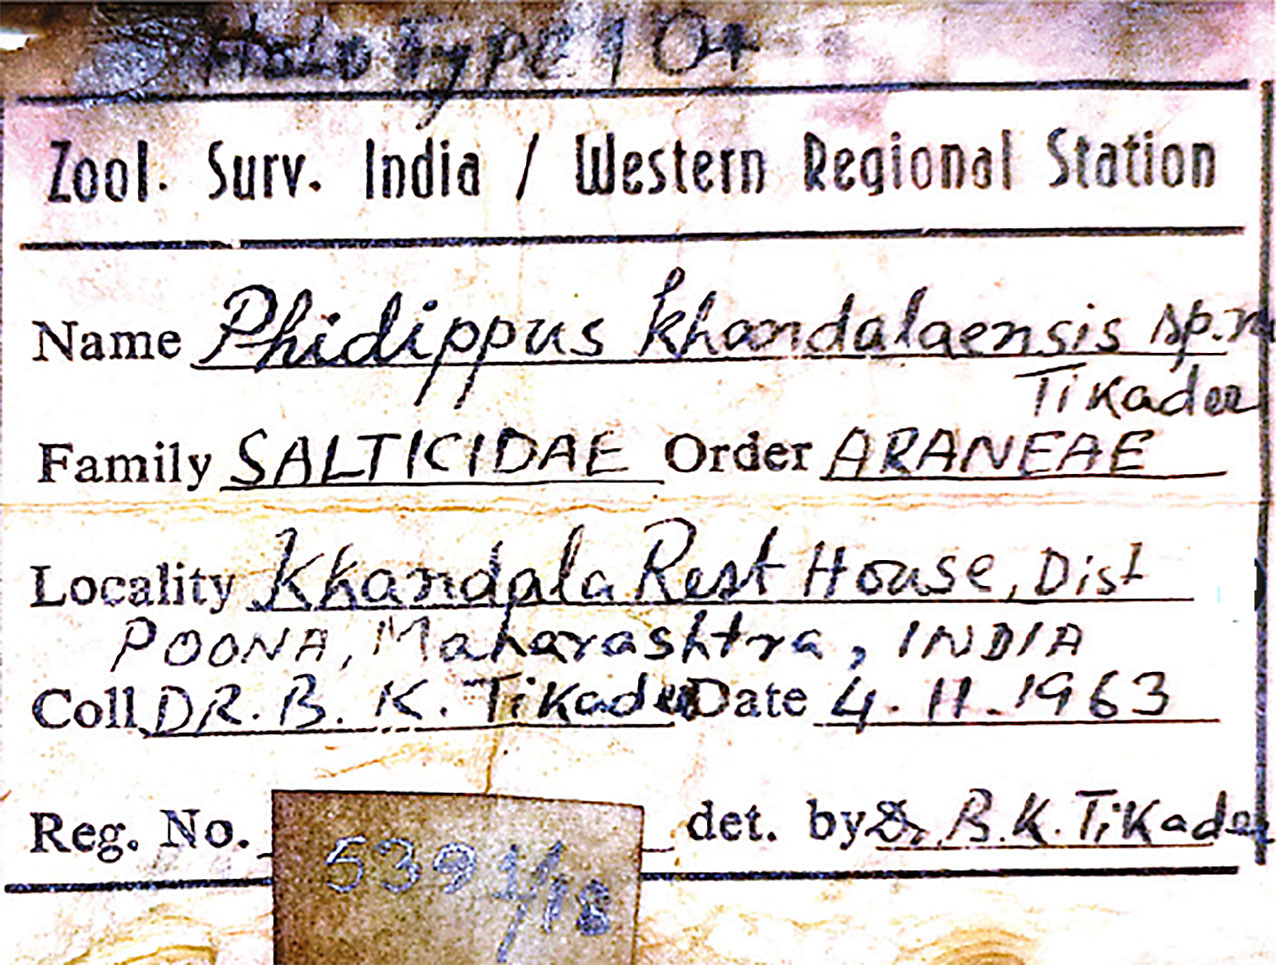 Holotype 1 ♀
Zool. Surv. India / Western Regional Station
Name Phidippus khandalaensis sp.n
Tikader
Family SALTICIDAE Order ARANEAE
Locality Khandala Rest House, Dist
POONA, Maharashtra, INDIA
Coll DR. B. K. Tikader Date 4.11.1963
Reg. No. det. by B.K. Tikader
/18